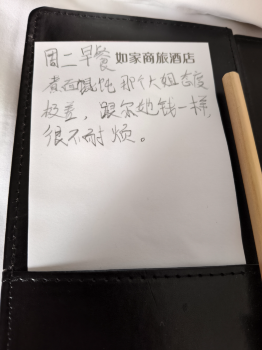 周二早餐 如家商旅酒店
煮面馄饨那个大姐态度
极差，跟欠她钱一样，
很不耐烦。